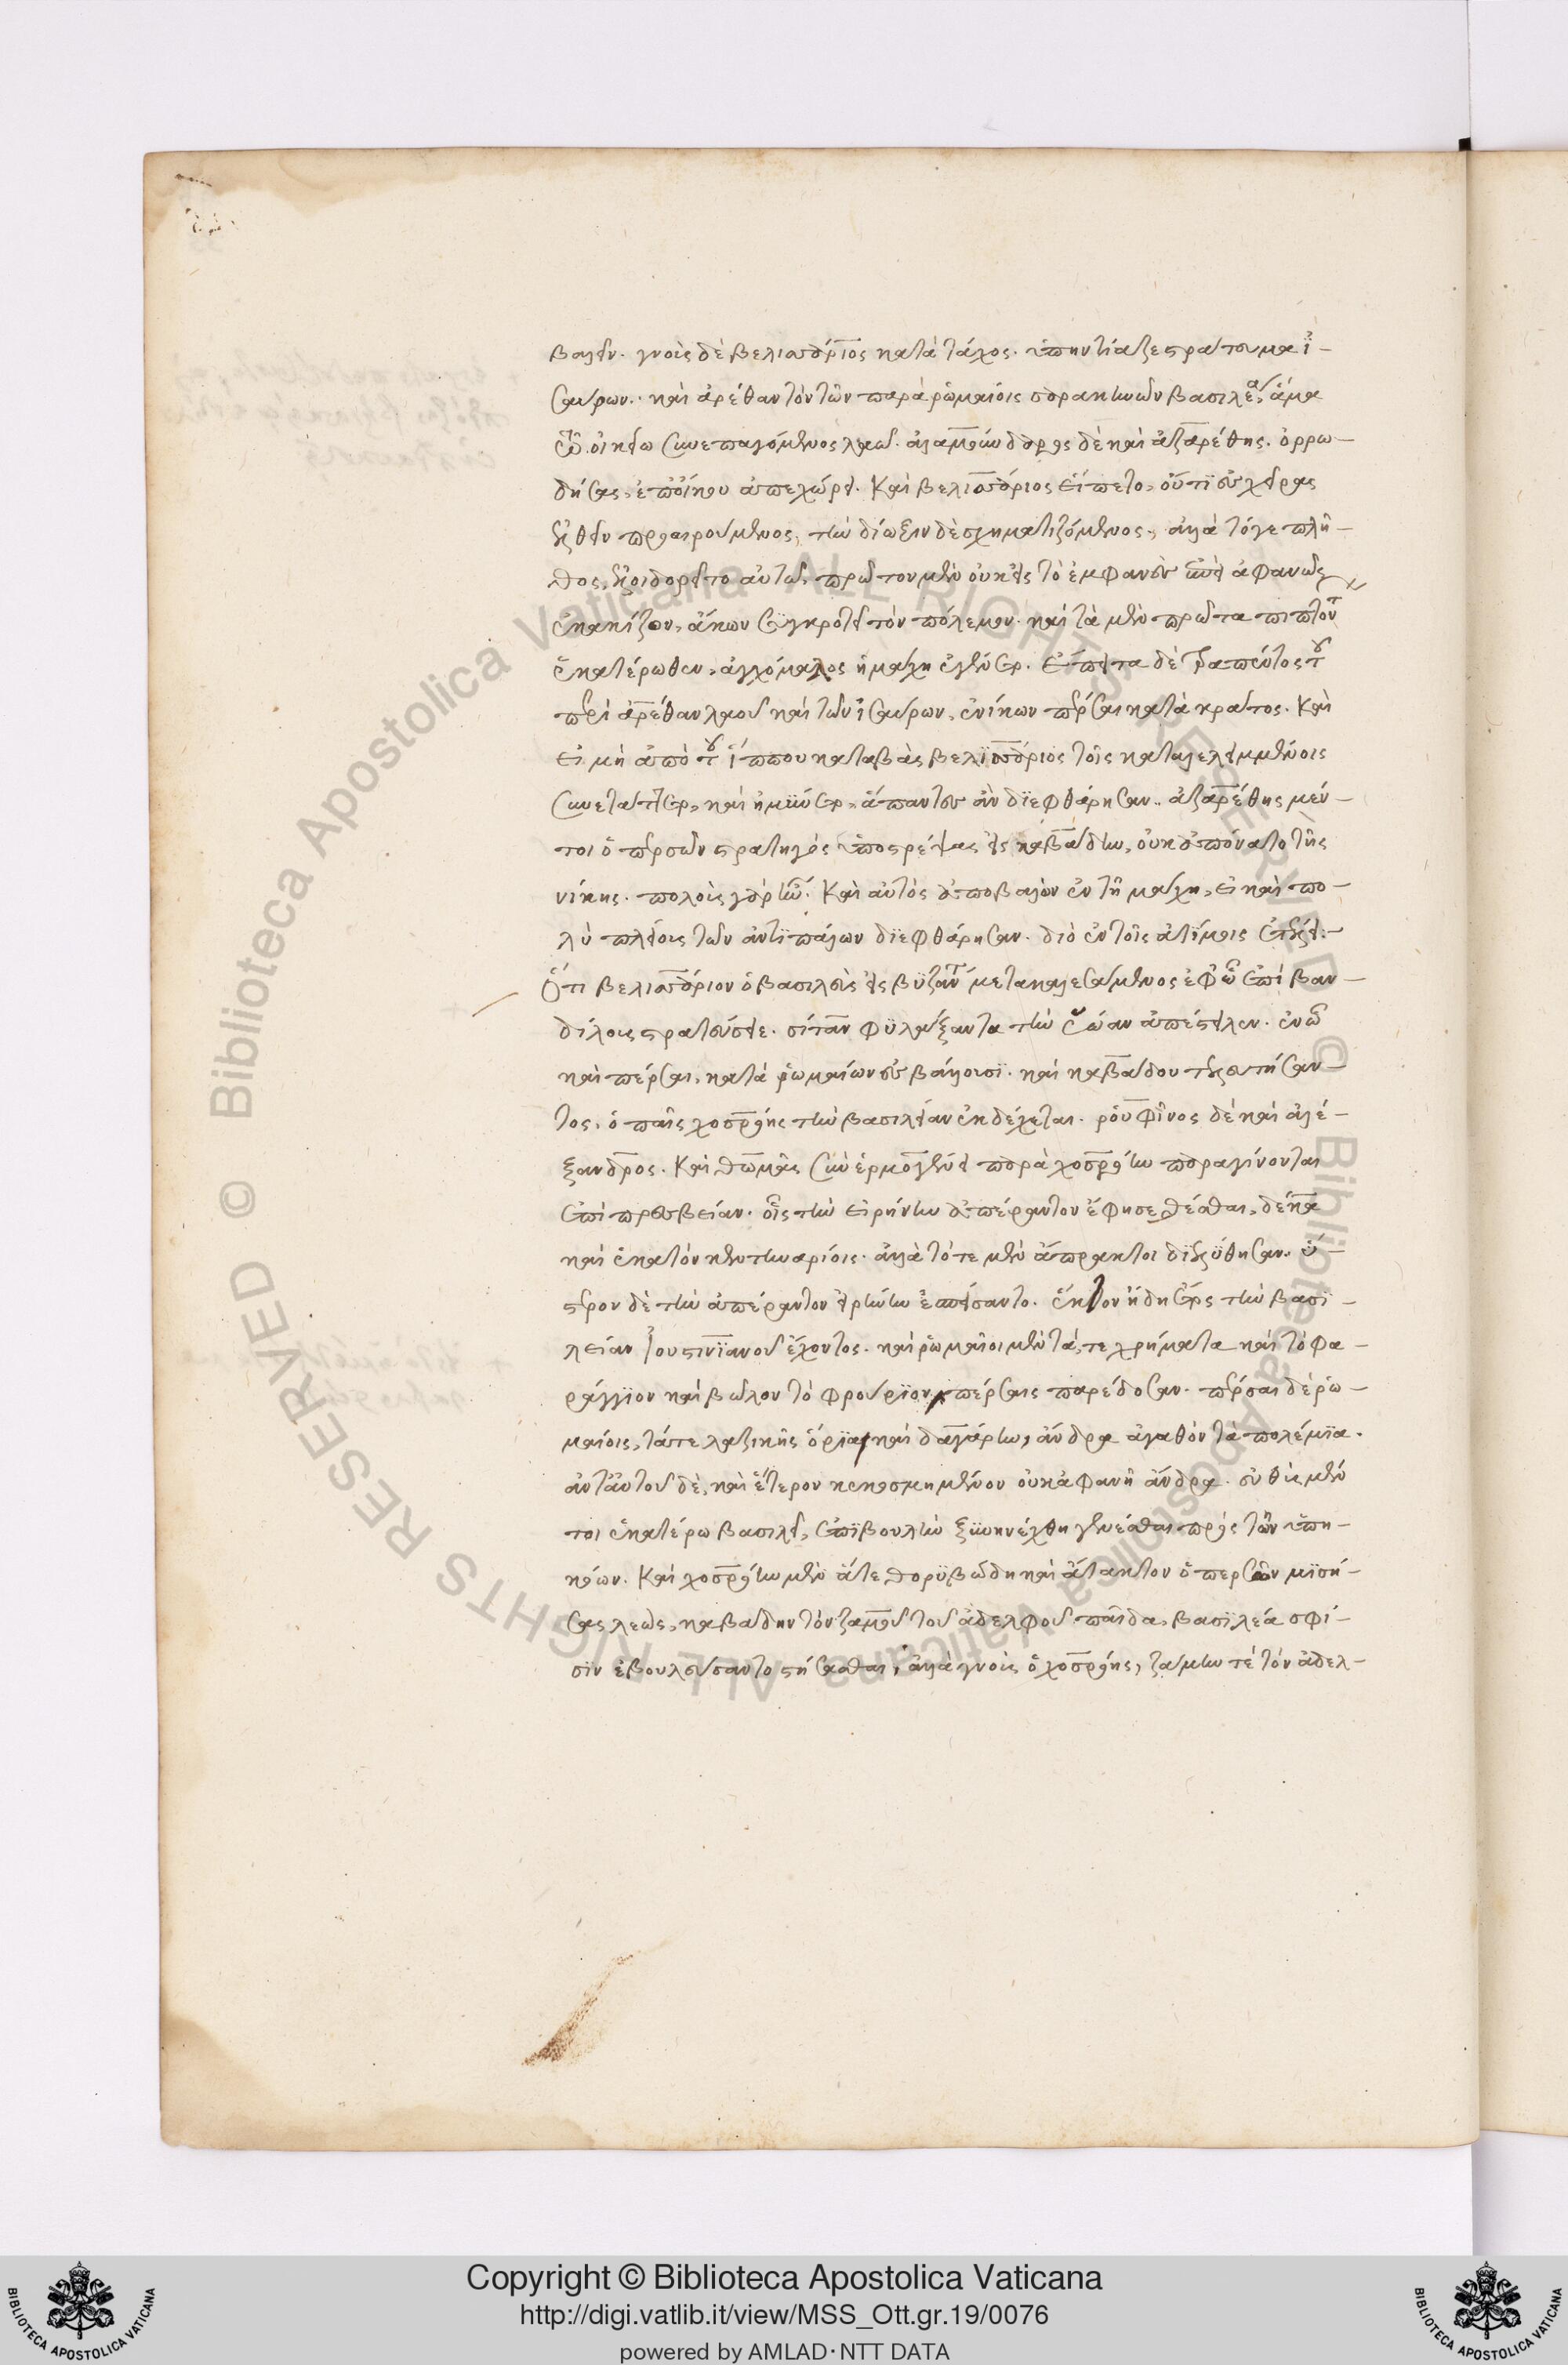 βαλεῖν. γνοὺς δὲ βελισσάριος κατὰ τάχος. ὑπηντίαζε στράτευμα ἰ-
σαύρων. καὶ ἀρέθαν τὸν τῶν παρὰ ῥωμαίοις σαρακηνῶν βασιλέα, ἅμα
τῷ οἰκείω συνεπαγόμενος λαῶ. ἀλαμούνδαρος δὲ καὶ ἀζαρέθης. ὀρρω-
δήσας, ἐπ' οἴκου ἀπεχώρει. Καὶ βελισσάριος εἵπετο, οὔτι ἐς χεῖρας
ἐλθεῖν προαιρούμενος, τὴν δίωξιν δὲ σχηματιζόμενος, ἀλλὰ τό γε πλῆ-
θος, ἐλοιδορεῖτο αὐτῶ, πρῶτον μὲν οὐκ εἰς τὸ ἐμφανὲς ἐπεὶ ἀφανῶς
ἐκάκιζον, ἄκων συγκροτεῖ τὸν πόλεμον. καὶ τὰ μὲν πρῶτα πιπτόντ
ἑκατέρωθεν, ἀγχόμαλος ἡ μάχη ἐγένετο. Ἔπειτα δὲ τραπέντος τοῦ
περὶ ἀρέθαν λαοῦ καὶ τῶν ἰσαύρων, ἐνίκων πέρσαι κατὰ κράτος. Καὶ
εἰ μὴ ἀπὸ τοῦ ἵππου καταβὰς βελισσάριος τοῖς καταλελειμμένοις
συνετάττετο, καὶ ἠμύνετο, ἅπαντες ἂν διεφθάρησαν. ἀζαρέθης μέν-
τοι ὁ περσῶν στρατηγὸς ὑποστρέψας εἰς καβάδην, οὐκ ἀπόνατο τῆς
νίκης. πολλοὺς γὰρ ἦν Καὶ αὐτὸς ἀποβαλὼν ἐν τῆ μάχη, εἰ καὶ πο-
λὺ πλείους τῶν ἀντιπάλων διεφθάρησαν. διὸ ἐν τοῖς ἀτίμοις ἐτέλει.-
Ὅτι βελισσάριον ὁ βασιλεὺς εἰς βυζάντ μετακαλεσάμενος ἐφ' ὧ ἐπὶ βαν-
δίλους στρατεύσειε. σίτταν φυλάξαντα τὴν ἑώαν ἀπέστειλεν. ἐν ὧ
καὶ πέρσαι, κατὰ ῥωμαίων ἐσβάλλουσι. καὶ καβάδου τελευτήσαν-
τος, ὁ παῖς χοσρόης τὴν βασιλείαν ἐκδέχεται. ῥουφῖνος δὲ καὶ ἀλέ-
ξανδρος. Καὶ θωμᾶς σὺν ἑρμογένει παρὰ χοσρόην παραγίνονται
ἐπὶ πρεσβείαν. οἷς τὴν εἰρήνην ἀπέραντον ἔφησε θέσθαι, δέκα
καὶ ἑκατὸν κεντηναρίοις. ἀλλὰ τότε μὲν ἄπρακτοι διελύθησαν. ὕ-
στερον δὲ τὴν ἀπέραντον εἰρήνην ἐσπείσαντο. ἕκτον ἤδη ἔτος τὴν βασι-
λείαν Ἰουστινιανοῦ ἔχοντος. καὶ ῥωμαῖοι μὲν τά τε χρήματα καὶ τὸ φα-
ράγγιον καὶ βῶλον τὸ φρούριον, πέρσαις παρέδοσαν. πέρσαι δὲ ῥω-
μαίοις, τά τε λαζικῆς ὅρια, καὶ δαγάρην, ἄνδρα ἀγαθὸν τὰ πολέμια.
ἀντ' αὐτοῦ δὲ, καὶ ἕτερον κεκοσμημένον οὐκ ἀφανῆ ἄνδρα. εὐθὺς μέν
τοι ἑκατέρω βασιλεῖ, ἐπιβουλὴν ξυνηνέχθη γενέσθαι πρὸς τῶν ὑπη-
κόων. Καὶ χοσρόην μὲν ἅτε θορυβώδη καὶ ἄτακτον ὁ περσῶν μισή-
σας λεὼς, καβάδην τὸν ζάμου τοῦ ἀδελφοῦ παῖδα, βασιλέα σφί-
σιν ἐβουλεύσαντο στήσασθαι, ἀλλὰ γνοὺς ὁ χοσρόης, ζάμην τε τὸν ἀδελ-
Copyright © Biblioteca Apostolica Vaticana
http://digi.vatlib.it/view/MSS_Ott.gr.19/0076
powered by AMLAD·NTT DATA